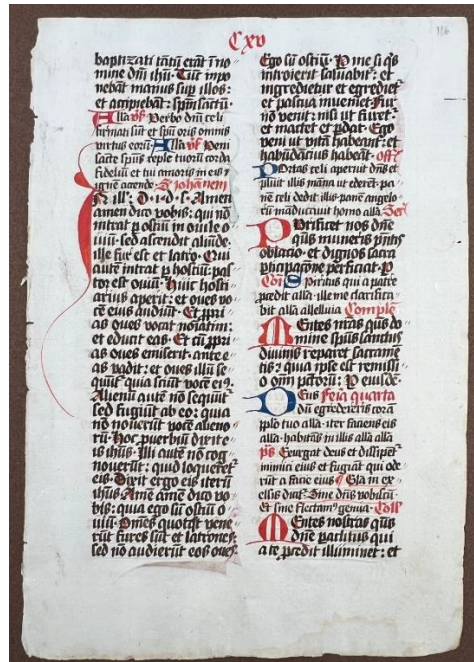 Cxv
116
baptizati tātū erāt ī no
mine dñi ihū. Tūc impo
nebāt manus sup illos:
et accipiebāt: spm̄ sactū.
Alla v̄s Verbo dñi celi
firmati sūt et spū oris omnis
virtus eorū. Alla v̄s Veni
sācte spūs reple tuorū corda
fideliū et tui amoris in eis
ignē accende. S Johānem
In ill. D. i. d. s. Amen
amen dico vobis: qui nō
intrat p ostiū in ovile o
viū: sed ascendit aliūde.
ille fur est et latro. Qui
autē intrat p hostiū: pas
tor est oviū. Huic hosti
arius aperit: et oves vo
cē eius audiūt. Et ppri
as oves vocat noīatim:
et educit eas. Et cū ppri
as oves emiserit. ante e
as vadit: et oves illū se
quūt quia sciūt vocē eiꝰ.
Alienū autē nō sequūt
sed fugiūt ab eo: quia
nō noverūt vocē alieno
rū. Hoc pverbiū dixit e
is ihūs. Illi autē nō cog
noverūt: quid loqueret
eis. Dixit ergo eis iterū
ihūs. Amē amē dico vo
bis: quia ego sū ostiū o
viū. Omēs quotqt vene
rūt fures sūt et latrones:
sed nō audierūt eos oves
Ego sū ostiū. P me si qs
introierit salvabit: et
ingredietur et egrediet
et pascua inveniet. Fur
nō venit: nisi ut furet.
et mactet et pdat. Ego
veni ut vitā habeant: et
habūdācius habeāt. offer
Portas celi aperuit dñs et
pluit illis māna ut ederēt. pa
nē celi dedit illis. panē angelo
rū māducavit homo alla Secr
Purificet nos dñe
qs muneris pntis
oblacio. et dignos sacra
pticipacōne perficiat. P
Cōi Spiritus qui a patre
pcedit alla. ille me clarifica
bit alla alleluia Comple
Mentes nrās qs do
mine spūs sanctus
divinis reparet sacrame
tis: quia ipse est remissi
o oīm pctorū. P eiusdē.
Deus feria quarta
dū egredereris corā
pplo tuo alla. iter faciens eis
alla. habitās in illis alla alla
ps Exurgat deus et dissipent
inimici eius et fugiāt qui ode
rūt a facie eius Gla in ex
celsis dicit. Sine dñs vobiscū
Et sine flectamꝰ genua. Coll
Mentes nostras qs
dñe paclitus qui
a te pcedit illuminet: et